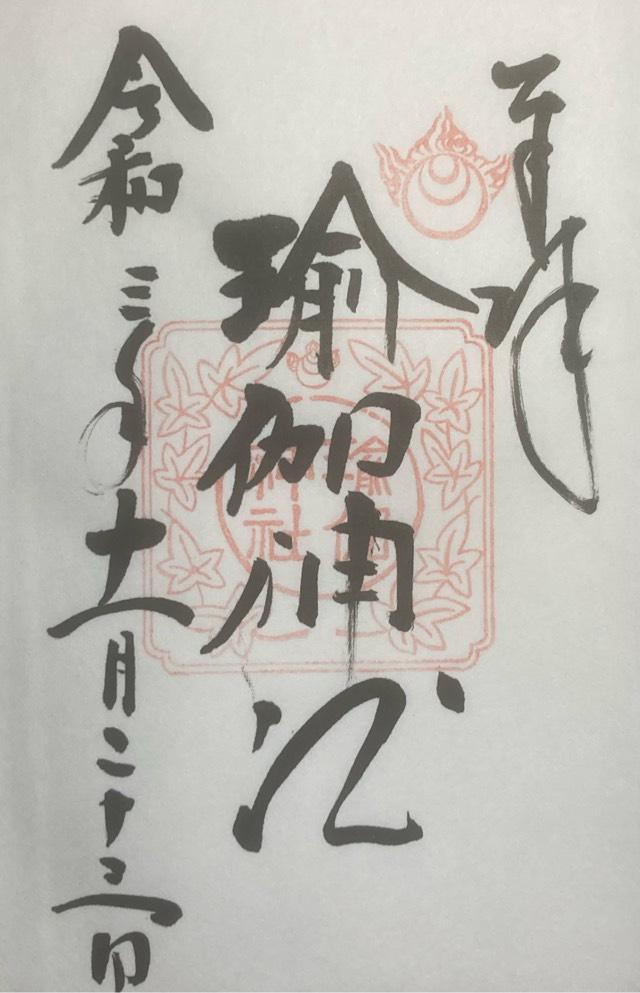 奉拝
瑜伽神社
令和三年十一月二十三日
瑜伽
神社